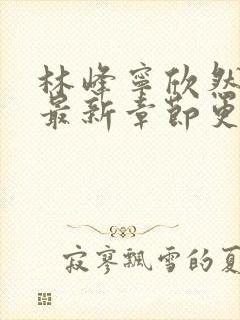 林峰寧欣然
最新章節更
寂寥飄雪的夏